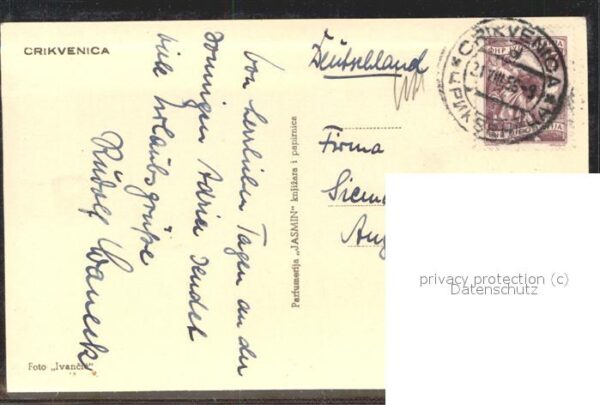 CRIKVENICA
Von herrlichen Tagen an der
sonnigen Adria sendet
viele Urlaubsgrüße
Rudolf
Foto „Ivančić"
Parfumerija „JASMIN" knjižara i papirnica
Deutschland
CRIKVENICA
Firma
Siem
Aug
privacy protection (c)
Datenschutz